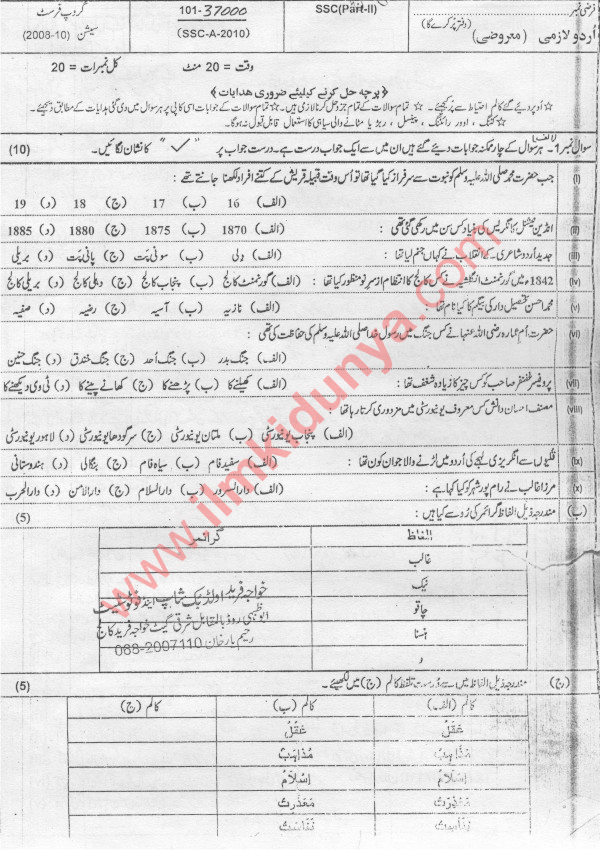 فرضی نمبر
(دفتر پُر کرے گا)
SSC(Part-II)
101-37000
گروپ فرسٹ
اُردو لازمی (معروضی)
(SSC-A-2010)
سیشن (2008-10)
وقت = 20 منٹ کل نمبرات = 20
﴿ پرچہ حل کرنے کیلئے ضروری ھدایات ﴾
☆ اُوپر دیئے گئے کالم احتیاط سے پُر کیجئے۔ ☆ تمام سوالات کے تمام جز حل کرنا لازمی ہیں۔ ☆ تمام سوالات کے جوابات اسی کاپی پر ہر سوال میں دی گئی ہدایات کے مطابق دیجئے۔
☆ کٹنگ ، اوور رائٹنگ ، پینسل ، ربڑ یا مٹانے والی سیاہی کا استعمال قابل قبول نہ ہوگا۔
سوال نمبر 1۔ (الف) ہر سوال کے چار ممکنہ جوابات دیئے گئے ہیں ان میں سے ایک جواب درست ہے۔ درست جواب پر " ✓ " کا نشان لگائیں۔ (10)
(i) جب حضرت محمد صلی اللہ علیہ وسلم کو نبوت سے سرفراز کیا گیا تھا تو اُس وقت قبیلہ قریش کے کتنے افراد لکھنا جانتے تھے :
(الف) 16 (ب) 17 (ج) 18 (د) 19
(ii) انڈین نیشنل کانگریس کی بنیاد کس سن میں رکھی گئی تھی : (الف) 1870 (ب) 1875 (ج) 1880 (د) 1885
(iii) جدید اُردو شاعری کے انقلاب نے کہاں جنم لیا تھا : (الف) دِلی (ب) سونی پت (ج) پانی پت (د) بریلی
(iv) 1842ء میں گورنمنٹ انگلشیہ نے کس کالج کا انتظام از سر نو منظور کیا تھا : (الف) گورنمنٹ کالج (ب) پنجاب کالج (ج) دہلی کالج (د) بریلی کالج
(v) محمد احسن تحصیل دار کی بیگم کا کیا نام تھا : (الف) نازیہ (ب) آسیہ (ج) رضیہ (د) صفیہ
(vi) حضرت اُم عمارہ رضی اللہ عنہا نے کس جنگ میں رسول خدا صلی اللہ علیہ وسلم کی حفاظت کی تھی :
(الف) جنگ بدر (ب) جنگ اُحد (ج) جنگ خندق (د) جنگ حنین
(vii) پروفیسر غضنفر صاحب کو کس چیز کا زیادہ شغف تھا : (الف) کھیلنے کا (ب) پڑھنے کا (ج) کھانے پینے کا (د) ٹی وی دیکھنے کا
(viii) مصنف احسان دانش کس معروف یونیورسٹی میں مزدوری کرتا رہا تھا :
(الف) پنجاب یونیورسٹی (ب) ملتان یونیورسٹی (ج) سرگودھا یونیورسٹی (د) لاہور یونیورسٹی
(ix) قلیوں سے انگریزی لہجے کی اُردو میں لڑنے والا جوان کون تھا : (الف) سفید فام (ب) سیاہ فام (ج) بنگالی (د) ہندوستانی
(x) مرزا غالب نے رام پور شہر کو کیا کہا ہے : (الف) دارالسرور (ب) دارالسلام (ج) دارالامن (د) دارالحرب
(ب) مندرجہ ذیل الفاظ گرائمر کی رُو سے کیا ہیں : (5)
الفاظ گرائمر
غالب
نیک
چاقو
ہنسنا
و
خواجہ فرید اولڈ بک شاپ اینڈ فوٹوسٹیٹ
ابوظہبی روڈ بالمقابل شرقی گیٹ خواجہ فرید کالج
رحیم یار خان 068-2007110
www.ilmkidunya.com
(ج) مندرجہ ذیل الفاظ میں سے درست تلفظ کالم (ج) میں لکھیئے۔ (5)
کالم (الف) کالم (ب) کالم (ج)
عقل عقل
مذاہب مذاہب
اسلام اسلام
معذرت معذرت
نفاست نفاست